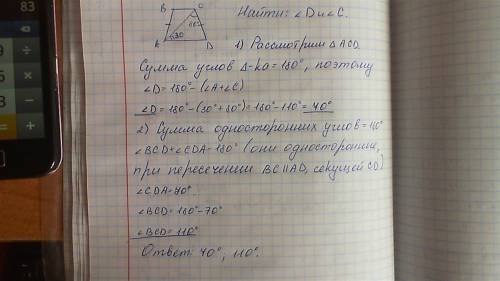 83
B C
80°
30
A D
Найти: ∠D и ∠C.
1) Рассмотрим △ACD
Сумма углов △-ка=180°, поэтому
∠D=180°-(∠A+∠C)
∠D=180°-(30°+80°)=180°-110°=40°
2) Сумма односторонних углов=180°
∠BCD+∠CDA=180° (они односторонни,
при пересечении BC∥AD, секущей CD)
∠CDA=70°
∠BCD=180°-70°
∠BCD=110°
Ответ: 40°, 110°.